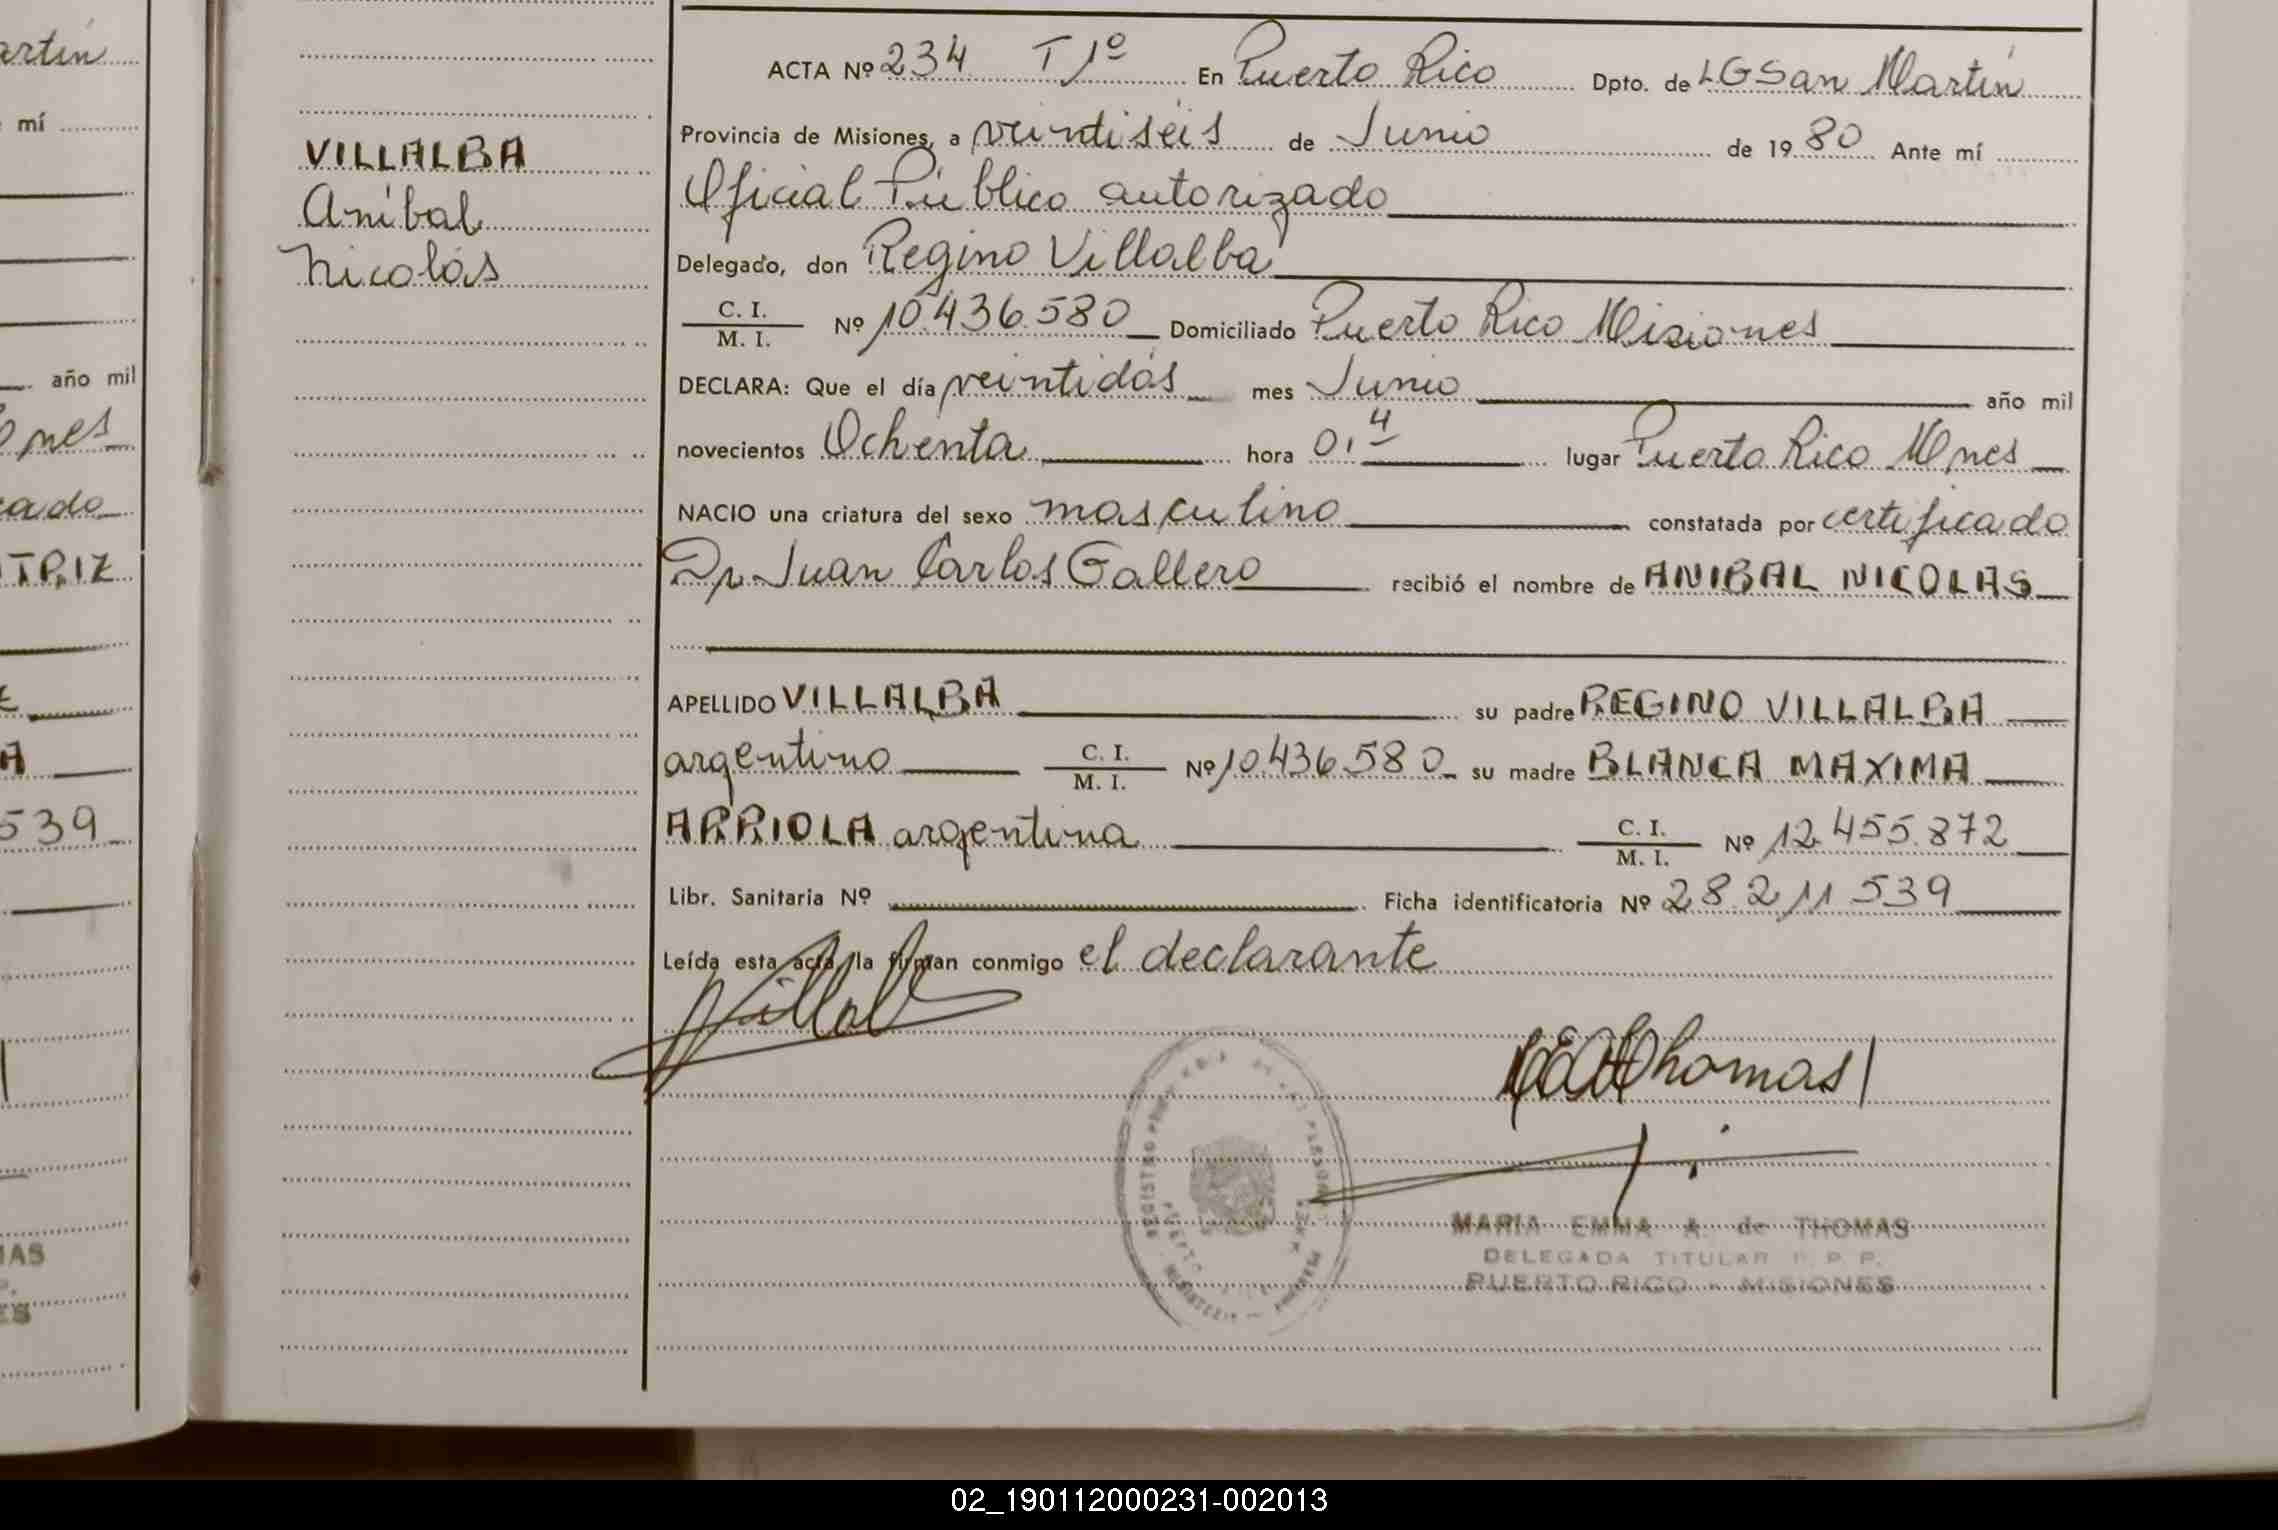 artín
mí
año mil
ones
cado
TRIZ
A
539
MAS
ES
VILLALBA
Aníbal
Nicolás
ACTA Nº 234 T 1º En Puerto Rico Dpto. de LGSan Martín
Provincia de Misiones, a veintiséis de Junio de 1980 Ante mí
Oficial Público autorizado
Delegado, don Regino Villalba
C. I.
M. I. Nº 10.436.580 Domiciliado Puerto Rico Misiones
DECLARA: Que el día veintidós mes Junio año mil
novecientos Ochenta hora 0,4 lugar Puerto Rico Mnes
NACIO una criatura del sexo masculino constatada por certificado
Dr. Juan Carlos Gallero recibió el nombre de ANIBAL NICOLAS
APELLIDO VILLALBA su padre REGINO VILLALBA
argentino C. I.
M. I. Nº 10.436.580 su madre BLANCA MAXIMA
ARRIOLA argentina C. I.
M. I. Nº 12.455.872
Libr. Sanitaria Nº Ficha identificatoria Nº 28.211.539
Leída esta acta, la firman conmigo el declarante
Thomas
MARIA EMMA A. de THOMAS
DELEGADA TITULAR R. P. P.
PUERTO RICO - MISIONES
02_190112000231-002013